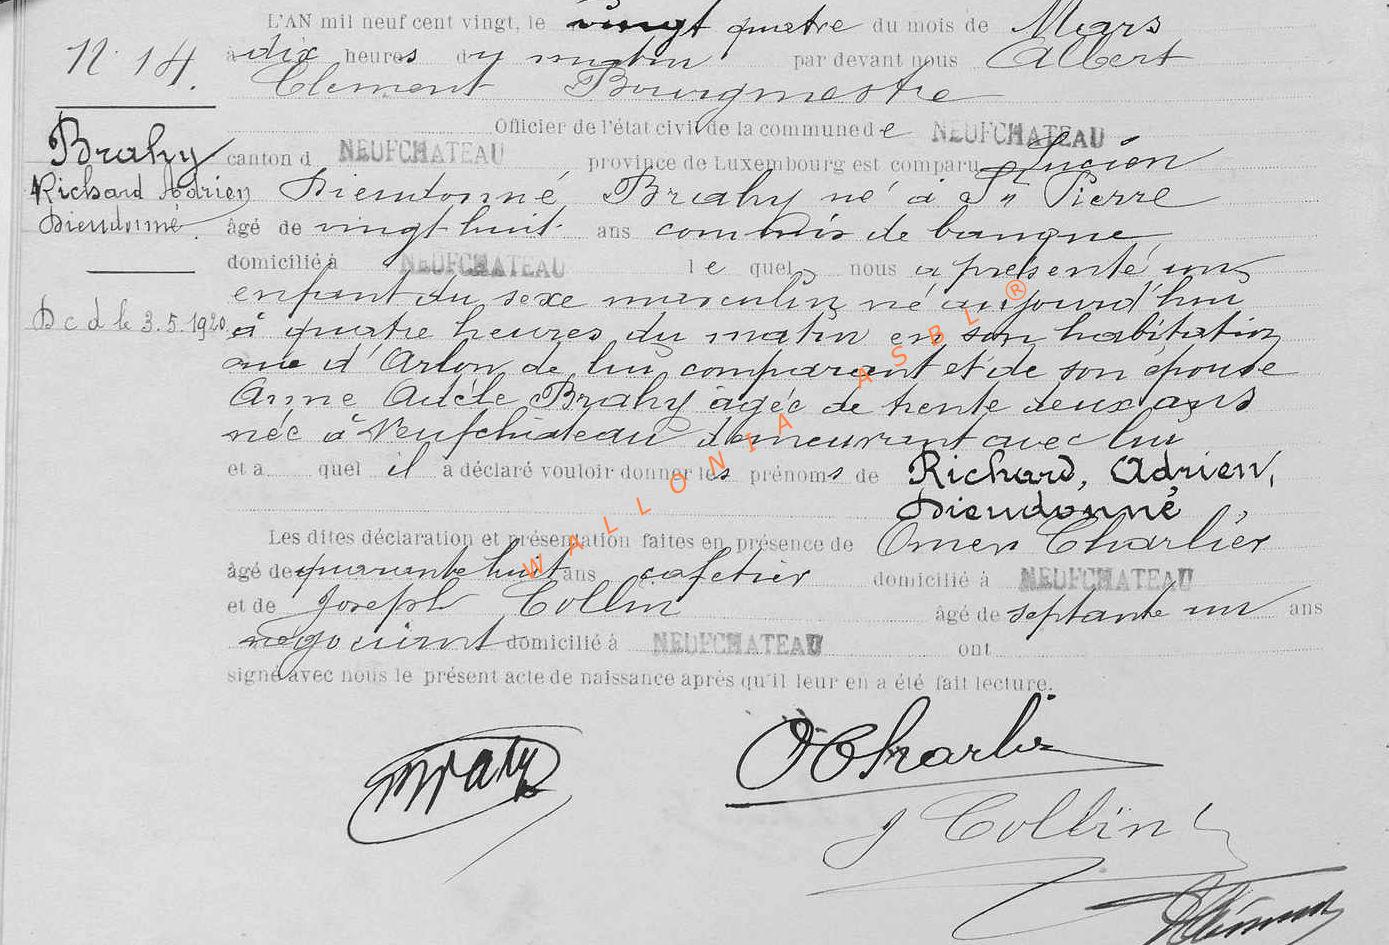 L'AN mil neuf cent vingt, le vingt quatre du mois de Mars
N. 14. à dix heures du matin par devant nous Albert
Clement Bourgmestre
Officier de l'état civil de la commune de NEUFCHATEAU
Brahy canton d NEUFCHATEAU province de Luxembourg est comparu Lucien
Richard Adrien Dieudonné Brahy né à St Pierre
Dieudonné. âgé de vingt-huit ans commis de banque
domicilié à NEUFCHATEAU le quel nous a présenté un
enfant du sexe masculin né aujourd'hui
Dcd le 3.5.1920 à quatre heures du matin en son habitation
rue d'Arlon, de lui comparant et de son épouse
Anne Adèle Brahy âgée de trente deux ans
née à Neufchâteau demeurant avec lui
et a quel il a déclaré vouloir donner les prénoms de Richard, Adrien,
Dieudonné
Les dites déclaration et présentation faites en présence de Omer Charlier
âgé de quarante huit ans cafetier domicilié à NEUFCHATEAU
et de Joseph Collin âgé de septante un ans
négociant domicilié à NEUFCHATEAU ont
signé avec nous le présent acte de naissance après qu'il leur en a été fait lecture.
Brahy
O Charlier
J Collin
WALLONIA ASBL ®